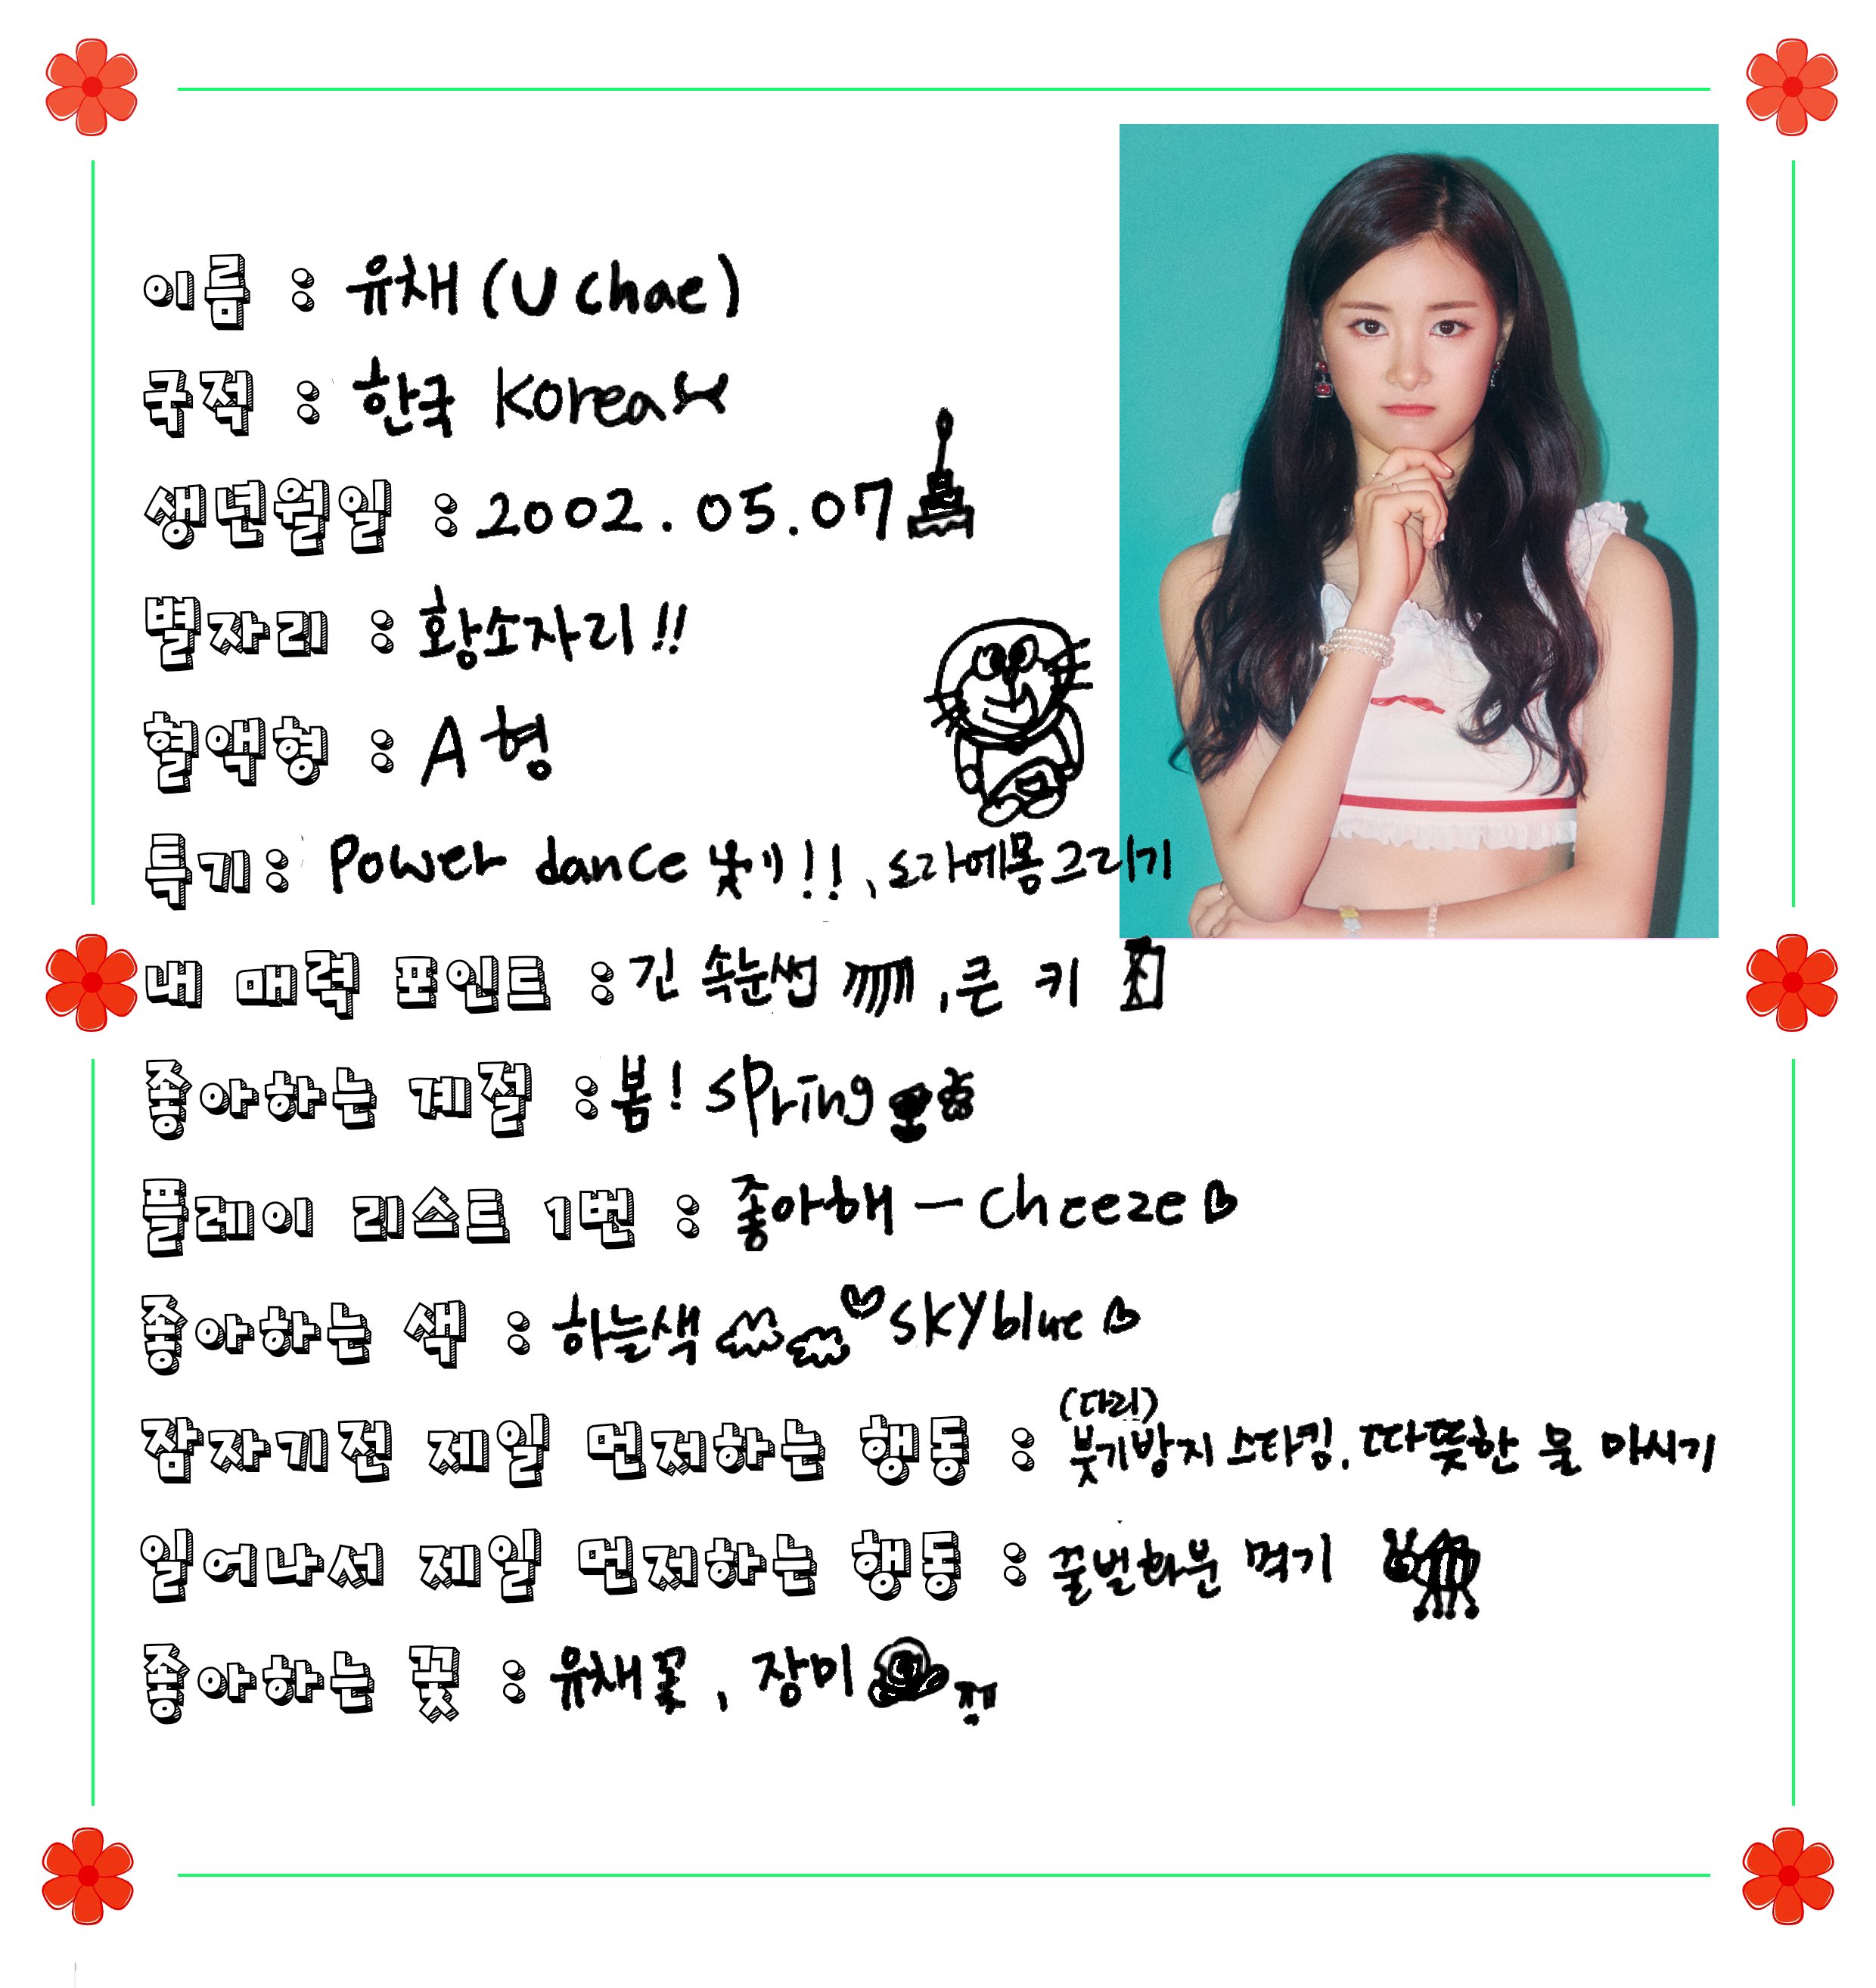 이름 : 유채 (U chae)
국적 : 한국 Korea
생년월일 : 2002. 05. 07
별자리 : 황소자리!!
혈액형 : A형
특기 : Power dance !!, 도라에몽 그리기
내 매력 포인트 : 긴 속눈썹, 큰 키
좋아하는 계절 : 봄! spring
플레이 리스트 1번 : 좋아해 - Cheeze
좋아하는 색 : 하늘색 skyblue
(다리)
잠자기전 제일 먼저하는 행동 : 붓기방지 스타킹, 따뜻한 물 마시기
일어나서 제일 먼저하는 행동 : 꿀벌화분 먹기
좋아하는 꽃 : 유채꽃, 장미